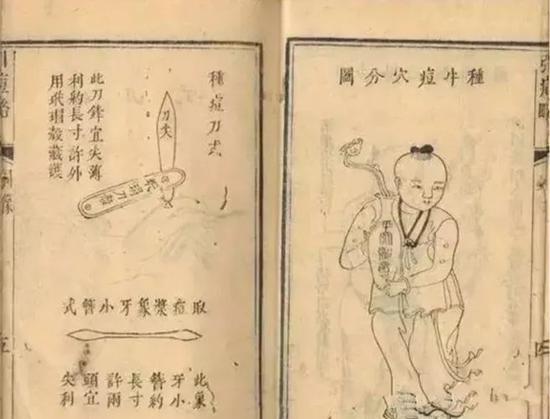 引痘略
四
種牛痘穴分圖
種痘刀式
刀尖
此刀鋒宜尖薄
利約長寸許外
用玳瑁殼藏護
取痘漿象牙小簪式
此象
牙小
簪約
長寸
許兩
頭宜
尖利
引痘略
五